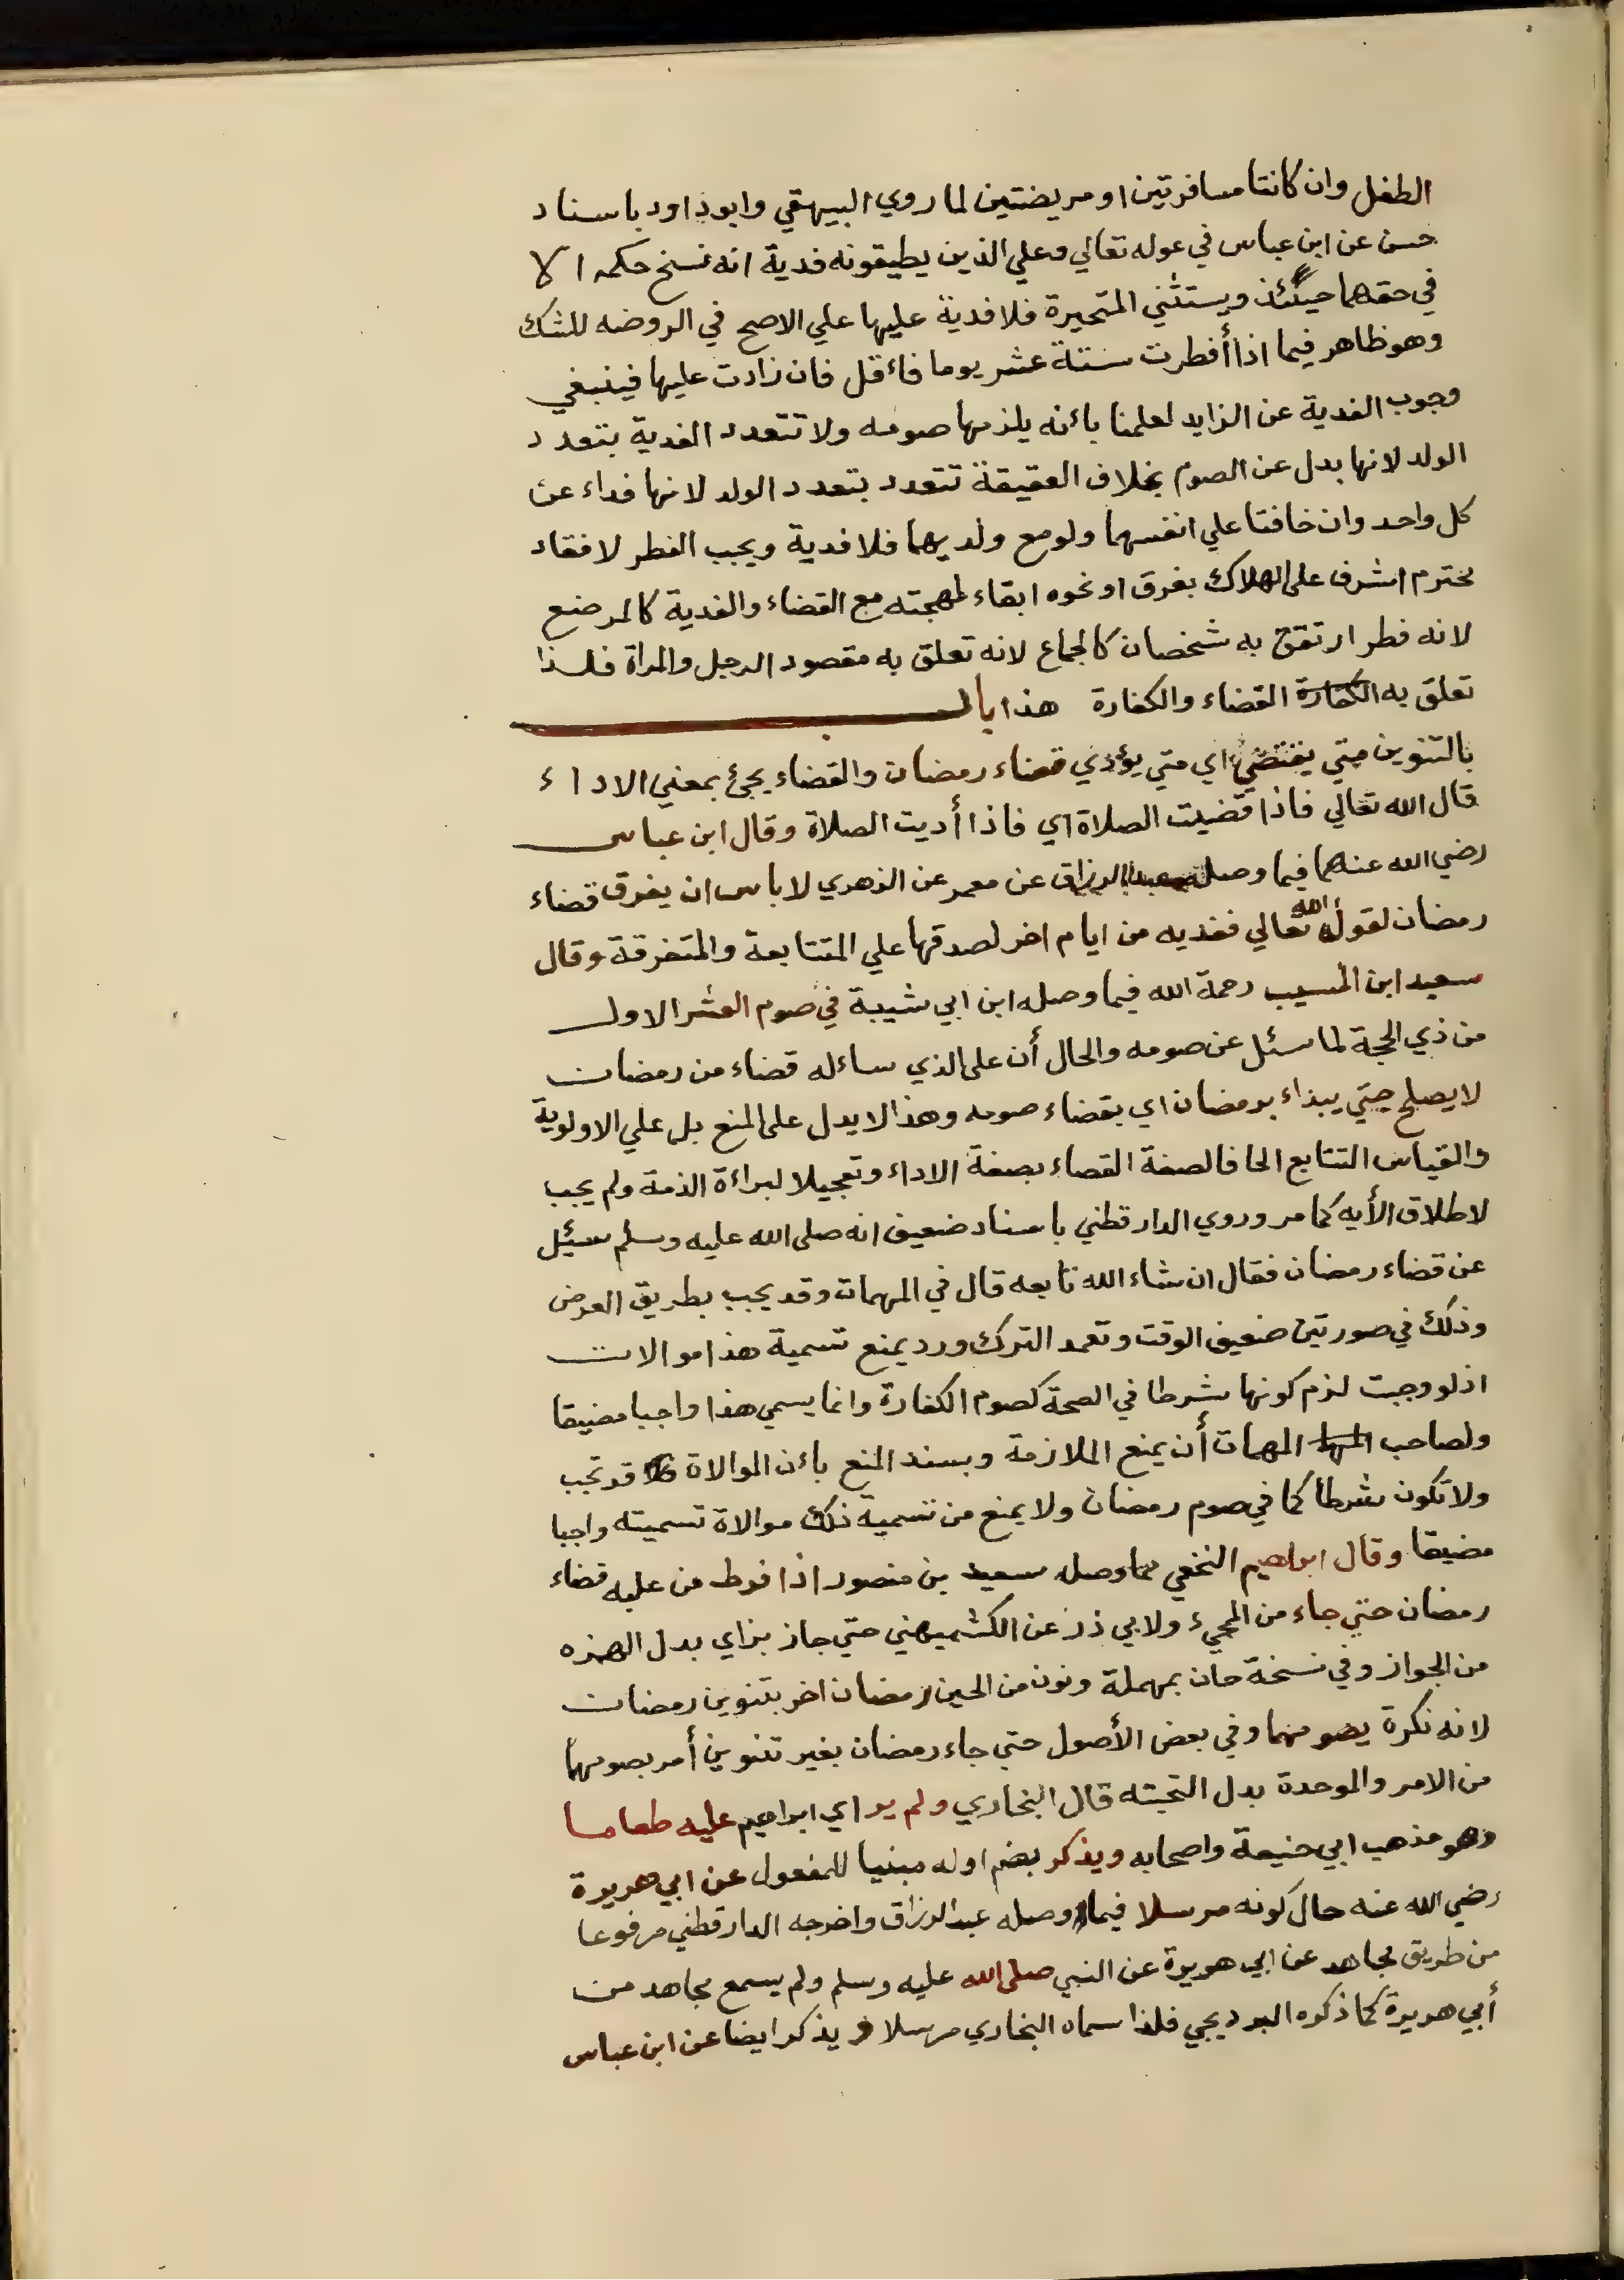 الطفل وان كانتا مسافرتين او مريضتين لما روي البيهقي وابو داود باسناد
حسن عن ابن عباس في عوله تعالي وعلي الذين يطيقونه فدية انه نسخ حكمه الا
في حقهما حينئذ ويستثني المتحيرة فلا فدية عليها علي الاصح في الروضه للشك
وهو ظاهر فيما اذا أفطرت ستة عشر يوما فاءقل فان زادت عليها فينبغي
وجوب الفدية عن الزايد لعلمنا باءنه يلزمها صومه ولا تتعدد الفدية بتعدد
الولد لانها بدل عن الصوم بخلاف العقيقة تتعدد بتعدد الولد لانها فداء عن
كل واحد وان خافتا علي انفسهما ولو مع ولديهما فلا فدية ويجب الفطر لافقاد
محترم اشرف على الهلاك بغرق او نحوه ابقاء لمهجته مع القضاء والفدية كالمرضع
لانه فطر ارتفق به شخصان كالجماع لانه تعلق به مقصود الرجل والمراة فلذا
تعلق به الكفارة القضاء والكفارة هذا باب
بالتنوين متي يقتضي اي متي يؤدي قضاء رمضان والقضاء يجئ بمعني الاداء
قال الله تعالي فاذا قضيت الصلاة اي فاذا أديت الصلاة وقال ابن عباس
رضي الله عنهما فيما وصله عبد الرزاق عن معمر عن الزهري لا باس ان يفرق قضاء
رمضان لقول الله تعالي فعديه من ايام اخر لصدقها علي المتتابعة والمتفرقة وقال
سعيد ابن المسيب رحمة الله فيما وصله ابن ابي شيبة في صوم العشر الاول
من ذي الحجة لما سئل عن صومه والحال أن على الذي ساءله قضاء من رمضان
لا يصلح حتي يبداء برمضان اي بقضاء صومه وهذا لا يدل على المنع بل علي الاولوية
والقياس التتابع الحاقا لصفة القضاء بصفة الاداء وتعجيلا لبراءة الذمة ولم يجب
لاطلاق الأيه كما مر وروي الدارقطني باسناد ضعيف انه صلى الله عليه وسلم سئل
عن قضاء رمضان فقال ان شاء الله تابعه قال في المهمات وقد يجب بطريق العرض
وذلك في صورتين ضعيف الوقت وتعمد الترك ورد يمنع تسمية هذا موالات
اذ لو وجبت لزم كونها شرطا في الصحة كصوم الكفارة وانما يسمي هذا واجبا مضيقا
ولصاحب المها المهمات أن يمنع الملازمة وبسند المنع باءن الموالاة قد تجب
ولا تكون شرطا كما في صوم رمضان ولا يمنع من تسمية ذلك موالاة تسميته واجبا
مضيقا وقال ابراهيم النخعي مما وصله سعيد بن منصور اذا فرط من عليه قضاء
رمضان حتي جاء من المجيء ولابي ذر عن الكشميهني حتي جاز بزاي بدل الهمزه
من الجواز وفي نسخة حان بمهملة ونون من الحين رمضان اخر بتنوين رمضان
لانه نكرة يصومهما وفي بعض الأصول حتي جاء رمضان بغير تنوين أمر بصومهما
من الامر والموحدة بدل التحيته قال البخاري ولم ير اي ابراهيم عليه طعاما
وهو مذهب ابي حنيفة واصحابه ويذكر بضم اوله مبنيا للمفعول عن ابي هريرة
رضي الله عنه حال كونه مرسلا فيما وصله عبد الرزاق واخرجه الدارقطني مرفوعا
من طريق مجاهد عن ابي هريرة عن النبي صلى الله عليه وسلم ولم يسمع مجاهد من
أبي هريرة كما ذكره البرديجي فلذا سماه البخاري مرسلا ويذكر ايضا عن ابن عباس